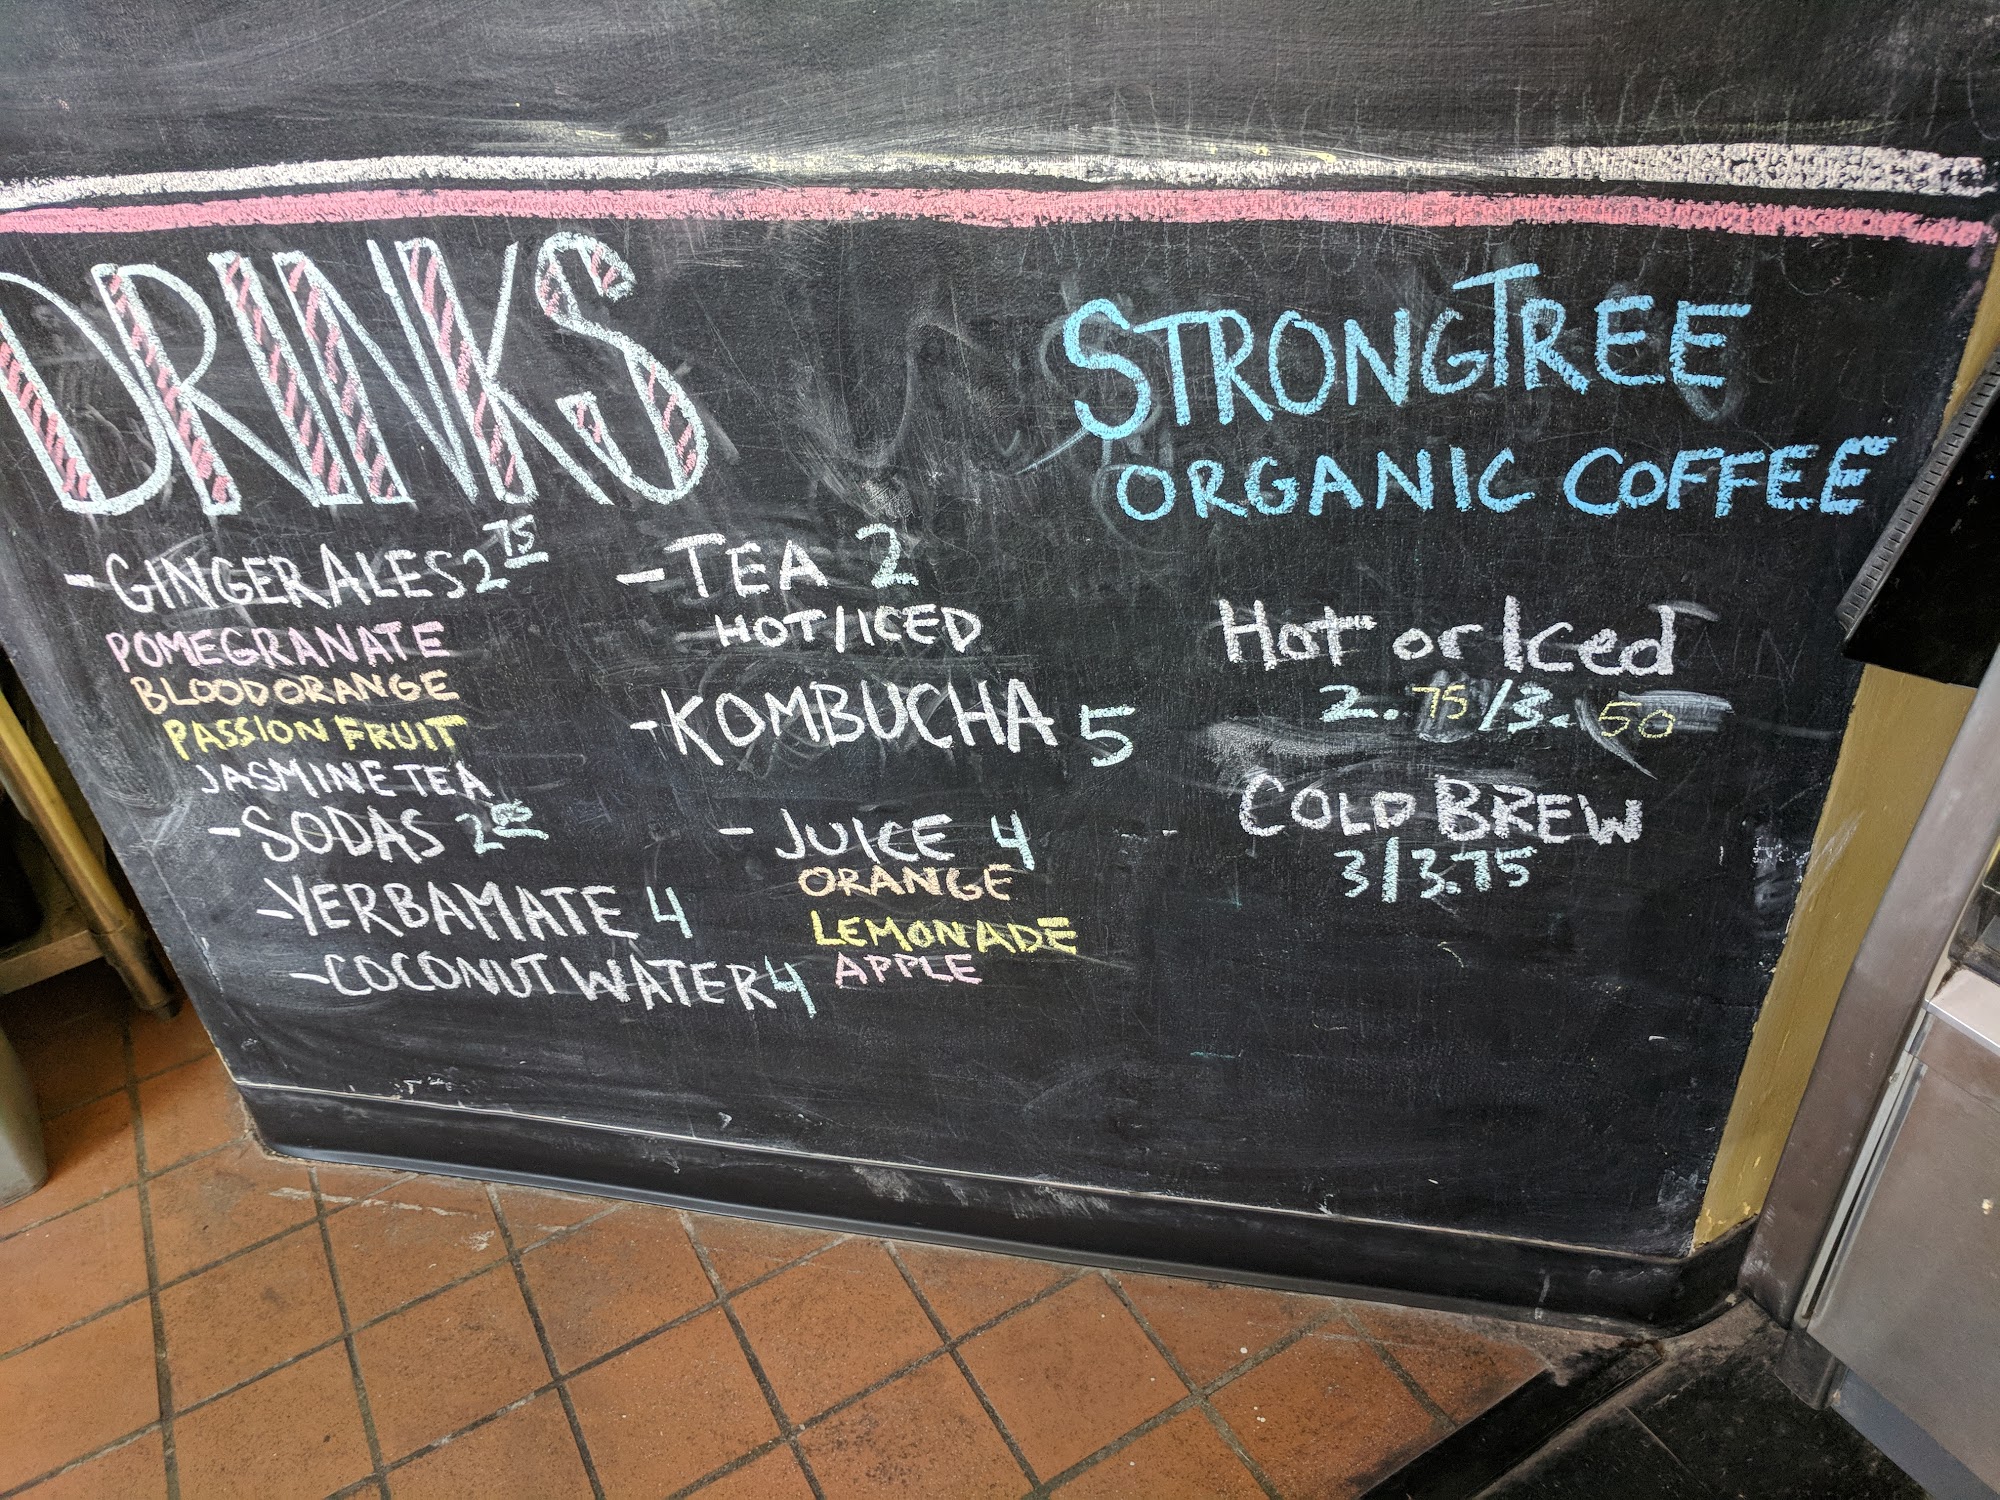 DRINKS
- GINGER ALES 2 75
POMEGRANATE
BLOOD ORANGE
PASSION FRUIT
JASMINE TEA
- SODAS 2 00
- YERBAMATE 4
- COCONUT WATER 4
- TEA 2
HOT/ICED
- KOMBUCHA 5
- JUICE 4
ORANGE
LEMONADE
APPLE
STRONGTREE
ORGANIC COFFEE
Hot or Iced
2.75/3.50
COLD BREW
3/3.75